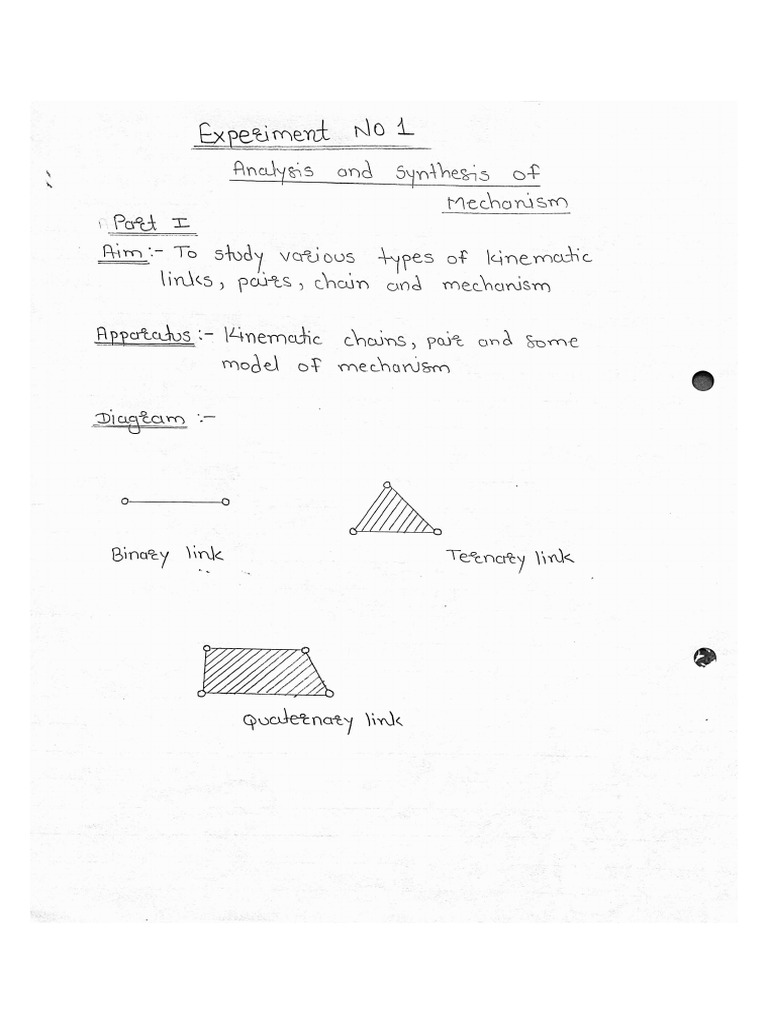 Experiment No 1
Analysis and Synthesis of
Mechanism
Part I
Aim:- To study various types of kinematic
links, pairs, chain and mechanism
Apparatus:- Kinematic chains, pair and some
model of mechanism
Diagram :-
Binary link
Ternary link
Quaternary link